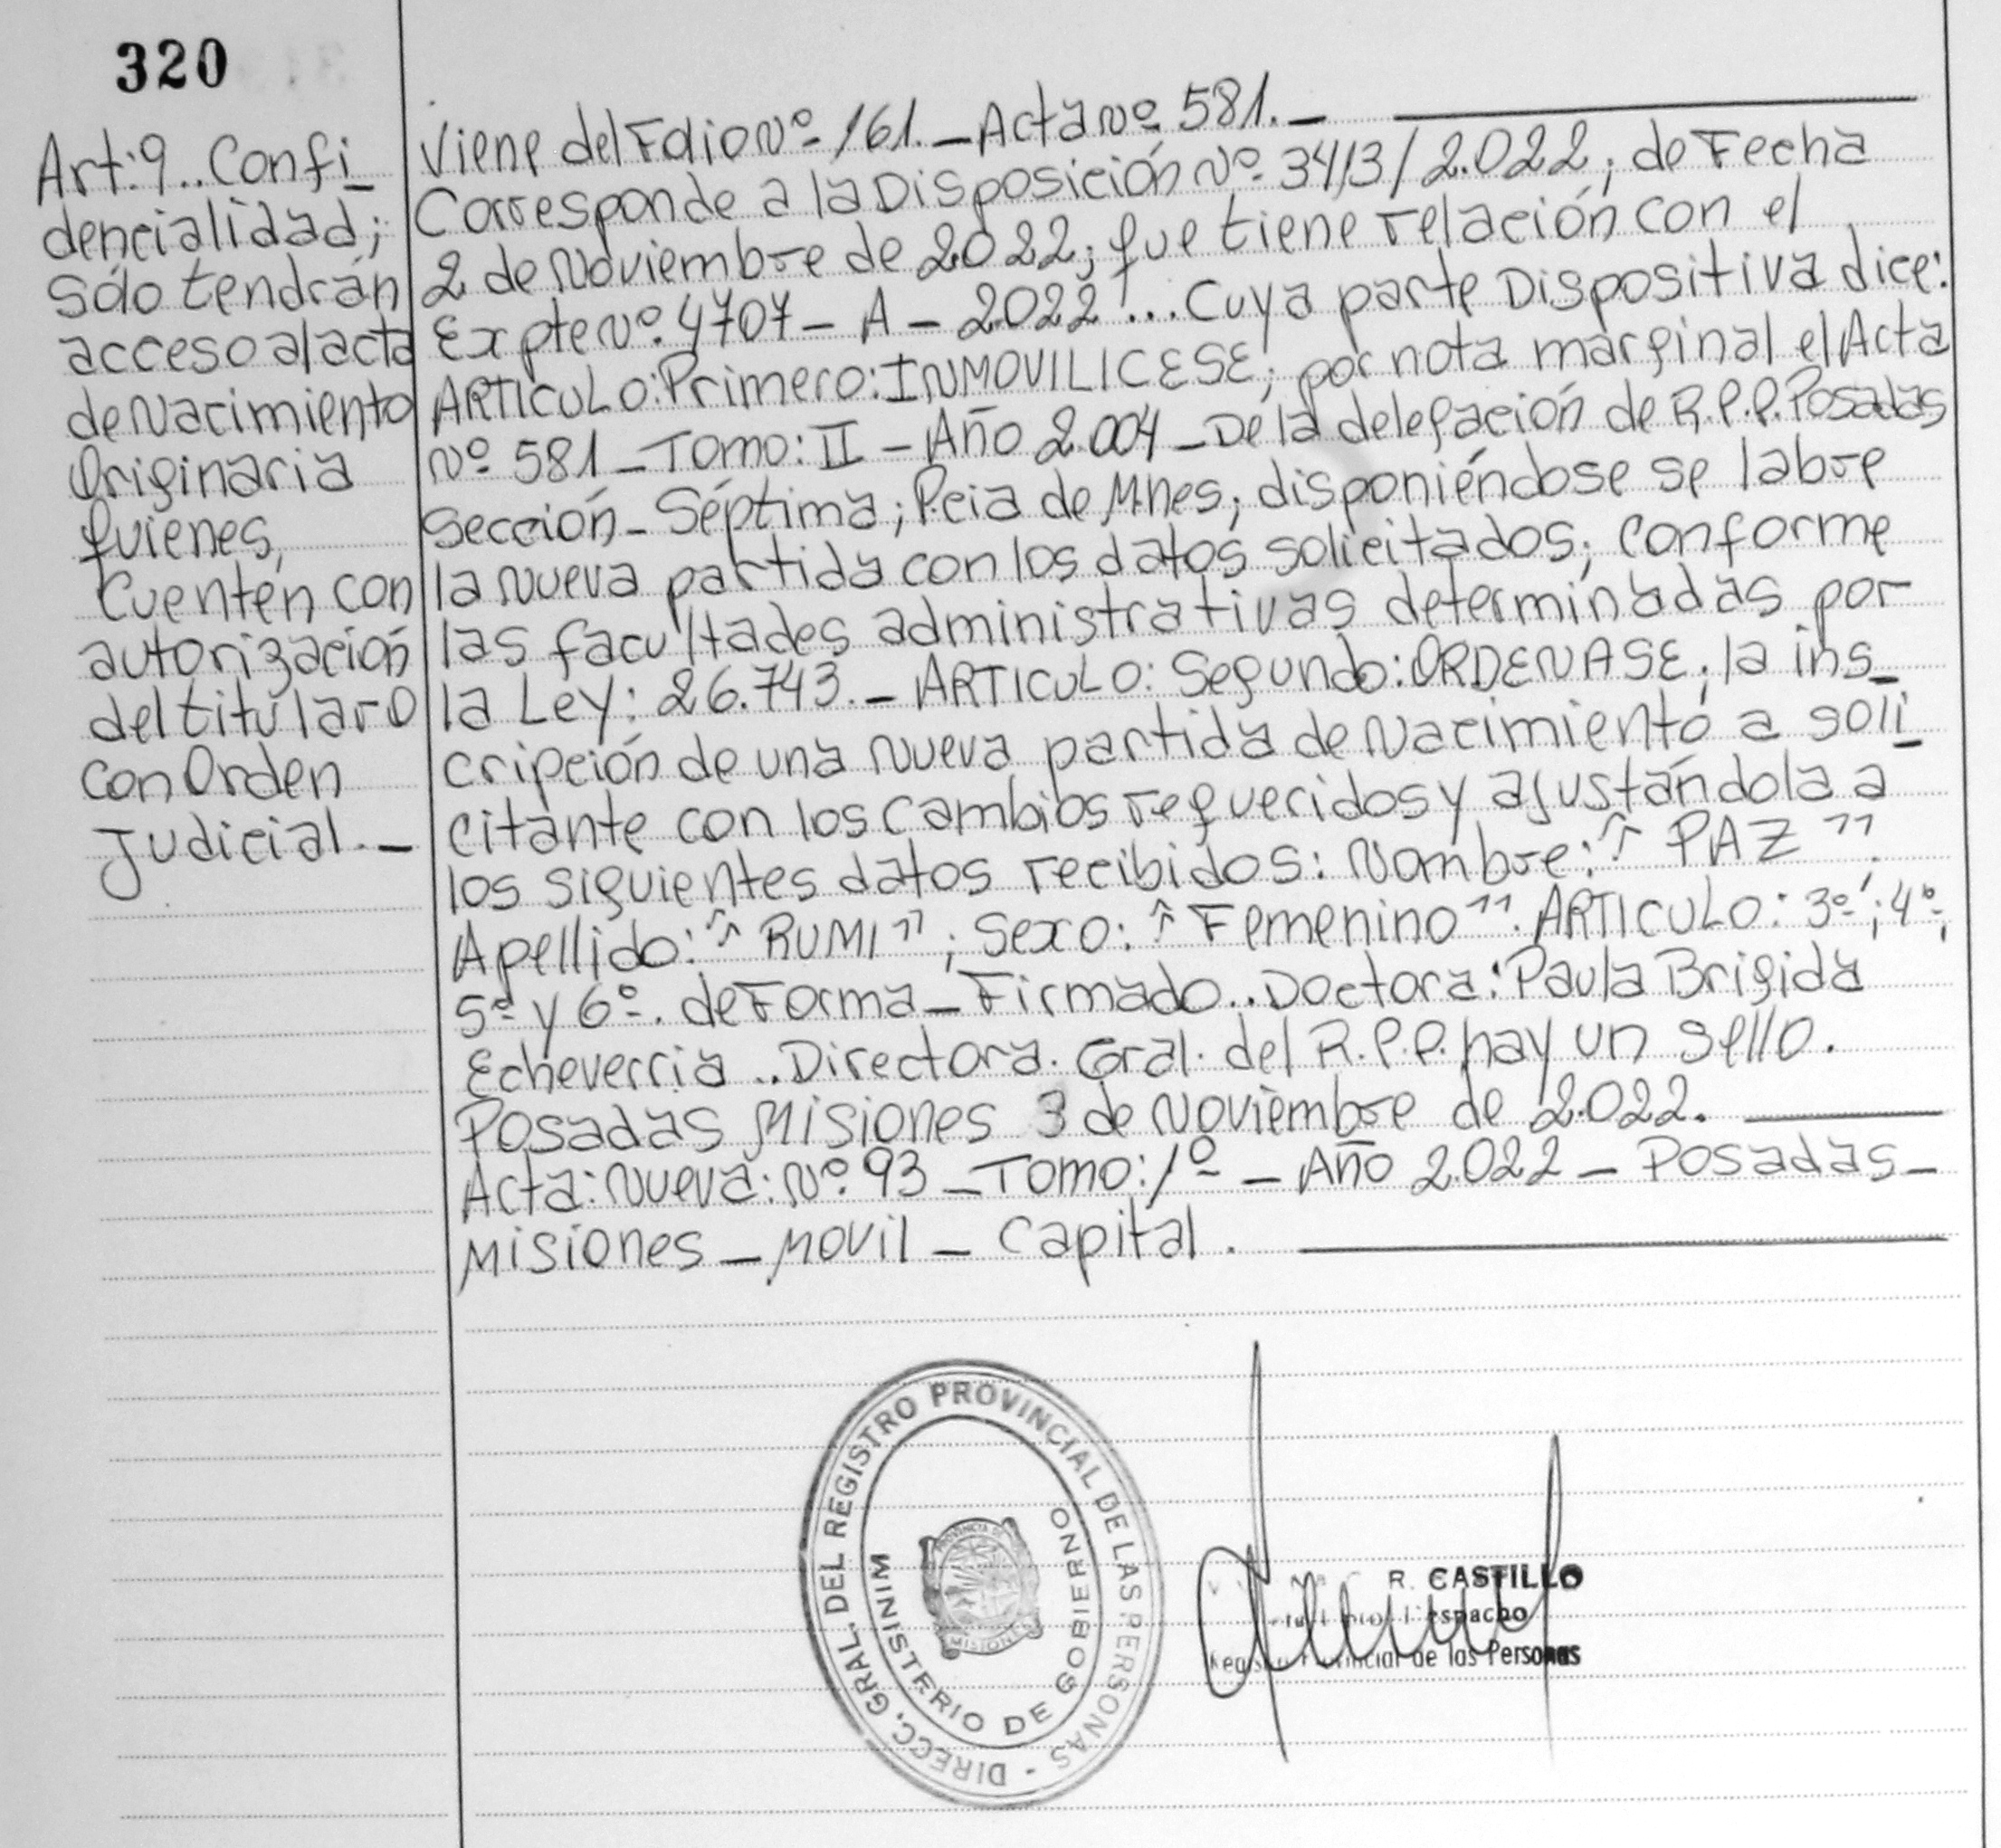 320
Art:9.. Confi_
dencialidad;
sólo tendrán
acceso al acta
de Nacimiento
Originaria
quienes,
Cuenten con
autorización
del titular o
con Orden
Judicial._
Viene del Folio Nº 161._ Acta Nº 581._
Corresponde a la Disposición Nº 3413/2.022; de Fecha
2 de Noviembre de 2022; que tiene relación con el
Expte Nº. 4707_ A _ 2022 ... Cuya parte Dispositiva dice:
ARTICULO: Primero: INMOVILICESE; por nota marginal el Acta
Nº 581_ Tomo: II _ Año 2.004_ De la delegación de R.P.P. Posadas
Sección_ Séptima; Pcia de Mnes; disponiéndose se labre
la Nueva partida con los datos solicitados; conforme
las facultades administrativas determinadas por
la Ley: 26.743._ ARTICULO: Segundo: ORDENASE; la ins_
cripción de una Nueva partida de Nacimiento a soli_
citante con los cambios requeridos y ajustándola a
los siguientes datos recibidos: Nombre: " PAZ "
Apellido: " RUMI "; Sexo: " Femenino ". ARTICULO: 3º; 4º;
5º y 6º. de Forma_ Firmado.. Doctora: Paula Brigida
Echeverria .. Directora. Gral. del R.P.P. hay un sello.
Posadas Misiones 3 de Noviembre de 2.022.
Acta: Nueva: Nº. 93 _ Tomo: 1º _ Año 2.022 _ Posadas_
Misiones _ Movil _ Capital.
DIRECC. GRAL. DEL REGISTRO PROVINCIAL DE LAS PERSONAS -
MINISTERIO DE GOBIERNO
PROVINCIA DE
MISIONES
R. CASTILLO
Despacho
Registro Provincial de las Personas